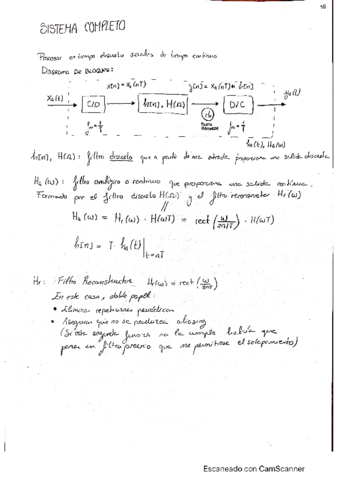 18
SISTEMA COMPLETO
Procesar en tiempo discreto señales de tiempo continuo
DIAGRAMA DE BLOQUES:
x[n] = xₐ(nT)
xₐ(t)
C/D
h[n], H(Ω)
D/C
yₐ(t)
hₐ(t), Hₐ(ω)
h[n], H(Ω): filtro discreto que a partir de una entrada proporciona una salida discreta
Hₐ(ω): filtro analógico o continuo que proporciona una salida continua.
Formado por el filtro discreto H(Ω) y el filtro reconstructor Hr(ω)
Hₐ(ω) = Hr(ω) · H(ωT) = rect(ω/2π/T) · H(ωT)
h[n] = T · hₐ(t)|t=nT
Hr: Filtro Reconstructor Hr(ω) = rect
En este caso, doble papel:
• Eliminar repeticiones periódicas
• Asegurar que no se produzca aliasing
(Si esta segunda función no la cumple habría que
poner un filtro previo que me permitiese el solapamiento)
Escaneado con CamScanner